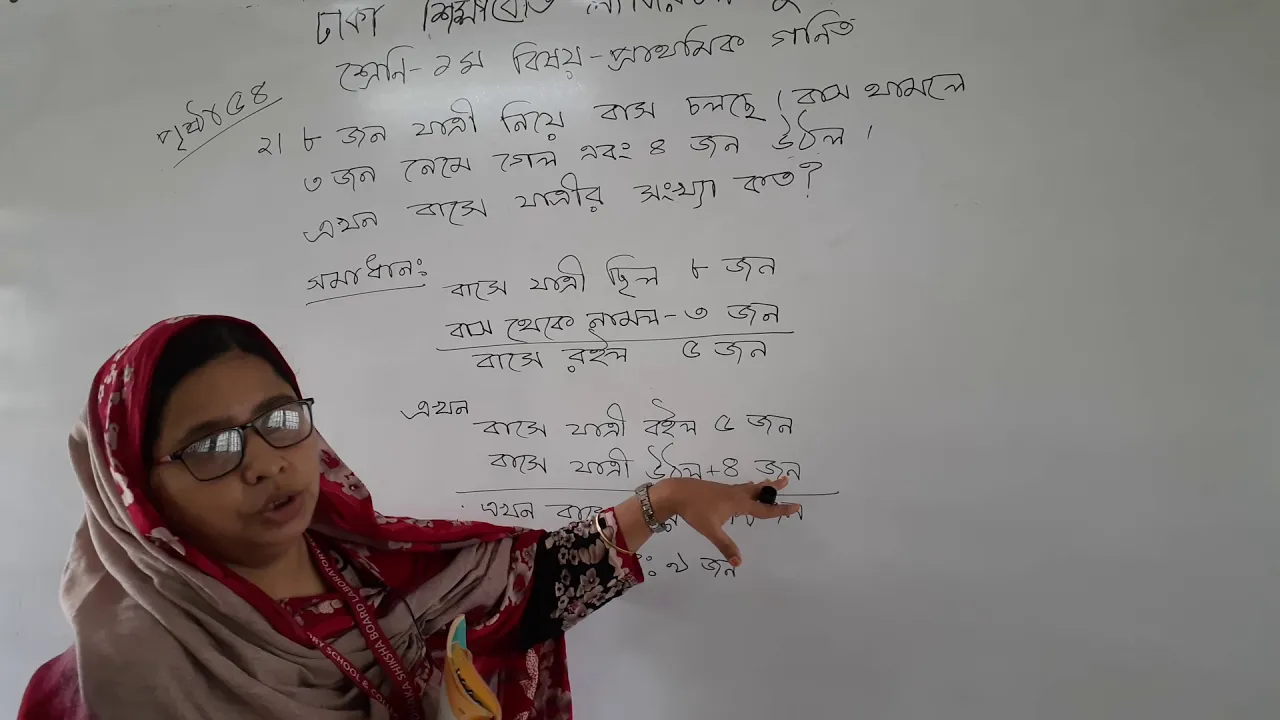 ঢাকা শিক্ষাবোর্ড
শ্রেনি-১ম বিষয়-প্রাথমিক গনিত
পৃষ্ঠা ৫৪
২। ৮ জন যাত্রী নিয়ে বাস চলছে। বাস থামলে
৩ জন নেমে গেল এবং ৪ জন উঠল।
এখন বাসে যাত্রীর সংখ্যা কত?
সমাধান:
বাসে যাত্রী ছিল ৮ জন
বাস থেকে নামল - ৩ জন
বাসে রইল ৫ জন
এখন
বাসে যাত্রী রইল ৫ জন
বাসে যাত্রী উঠল + ৪ জন
এখন
: ৯ জন
SHIKSHA BOARD LABORATORY
SCHOOL &